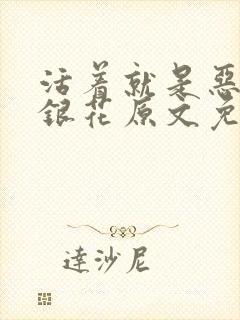 活着就是惡
銀花原文免
達沙尼